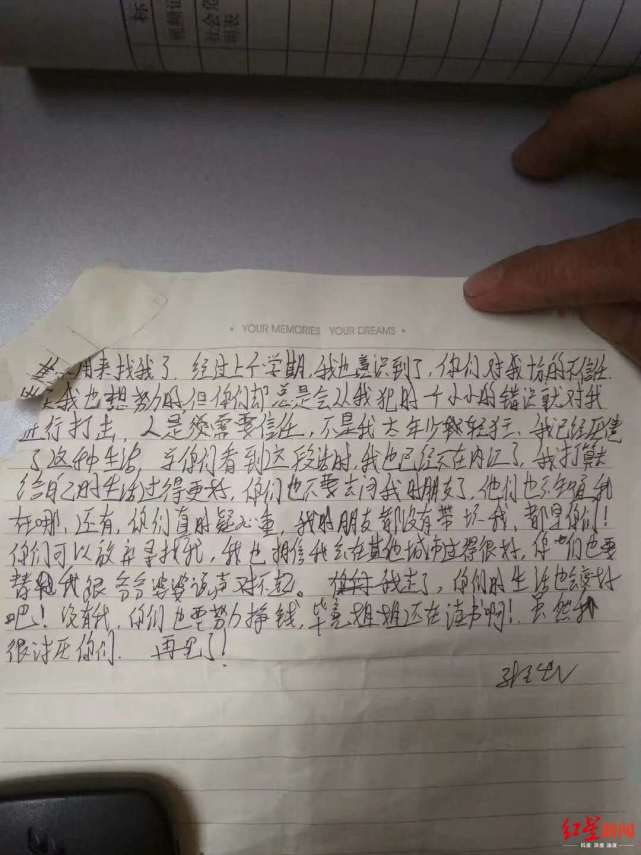 标
视频证
社会兑
明表
• YOUR MEMORIES YOUR DREAMS •
用来找我了，经过上个学期，我也意识到了，你们对我切的不信任
我也想努力的，但你们却总是会从我犯的一个小小的错误就对我
进行打击，人是须需要信任，不是我太年少轻狂，我已经厌倦
了这种生活，等你们看到这段话时，我也已经不在内江了，我打算去
给自己的生活过得更好，你们也不要去问我的朋友了，他们也不知道我
在哪，还有，你们真的疑心重，我的朋友都没有带坏我，都是你们！
你们可以放弃寻找我，我也相信我会在其他城市过得很好，你们也要
替我很爷爷婆婆说声对不起。我走了，你们的生活也会变好
吧！没有我，你们也要努力挣钱，毕竟姐姐还在读书啊！虽然我
很讨厌你们 再见了！
红星新闻
科度 深度 温度